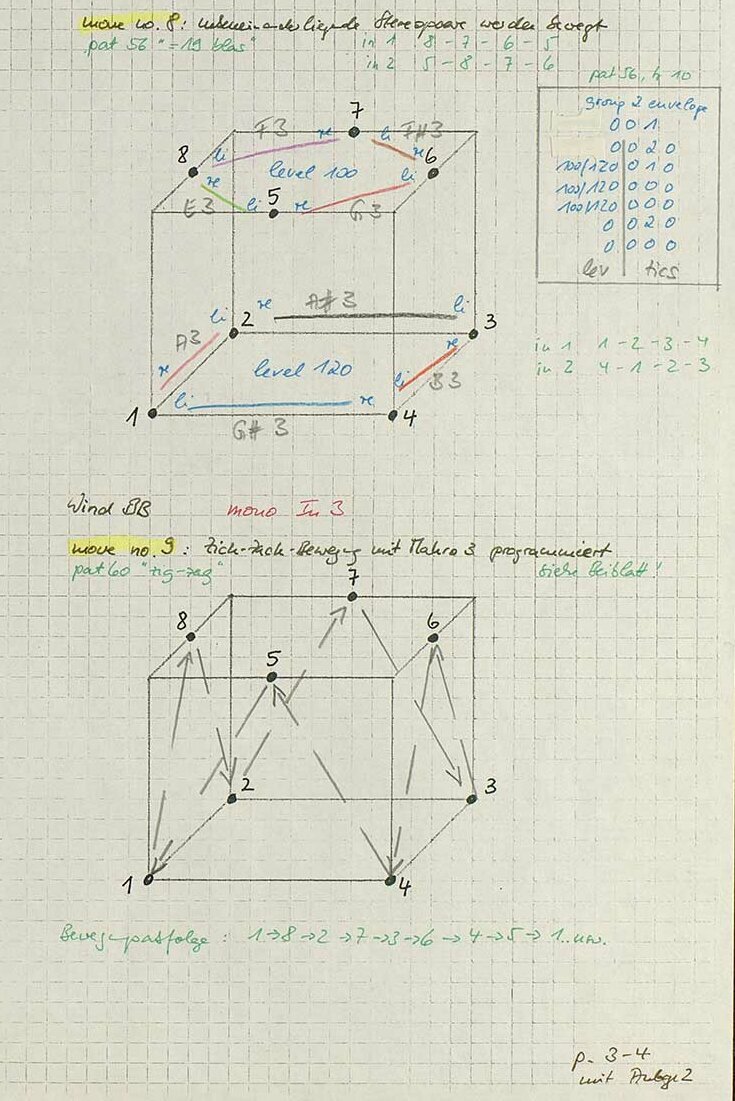 move no. 8: nebeneinanderliegende Stereopaare werden bewegt
pat 56 "=19 blas" in 1 8 - 7 - 6 - 5
in 2 5 - 8 - 7 - 6
pat 56, tr 10
group 2 envelope
0 0 1
0 0 2 0
100/120 0 1 0
100/120 0 0 0
100/120 0 0 0
0 0 2 0
0 0 0 0
lev tics
7
F3 re li F#3
8 li re 6
level 100
re li
5
E3 li re G3
A#3
li 2 re li 3
A3 re
re level 120 li B3
1 li re 4
G#3
in 1 1 - 2 - 3 - 4
in 2 4 - 1 - 2 - 3
Wind BB mono In 3
move no. 9: Zick-zack-Bewegung mit Makro 3 programmiert
pat 60 "zig-zag" siehe Beiblatt!
7
8 6
5
2 3
1 4
Bewegungsabfolge: 1→8→2→7→3→6→4→5→1..usw.
p. 3-4
mit